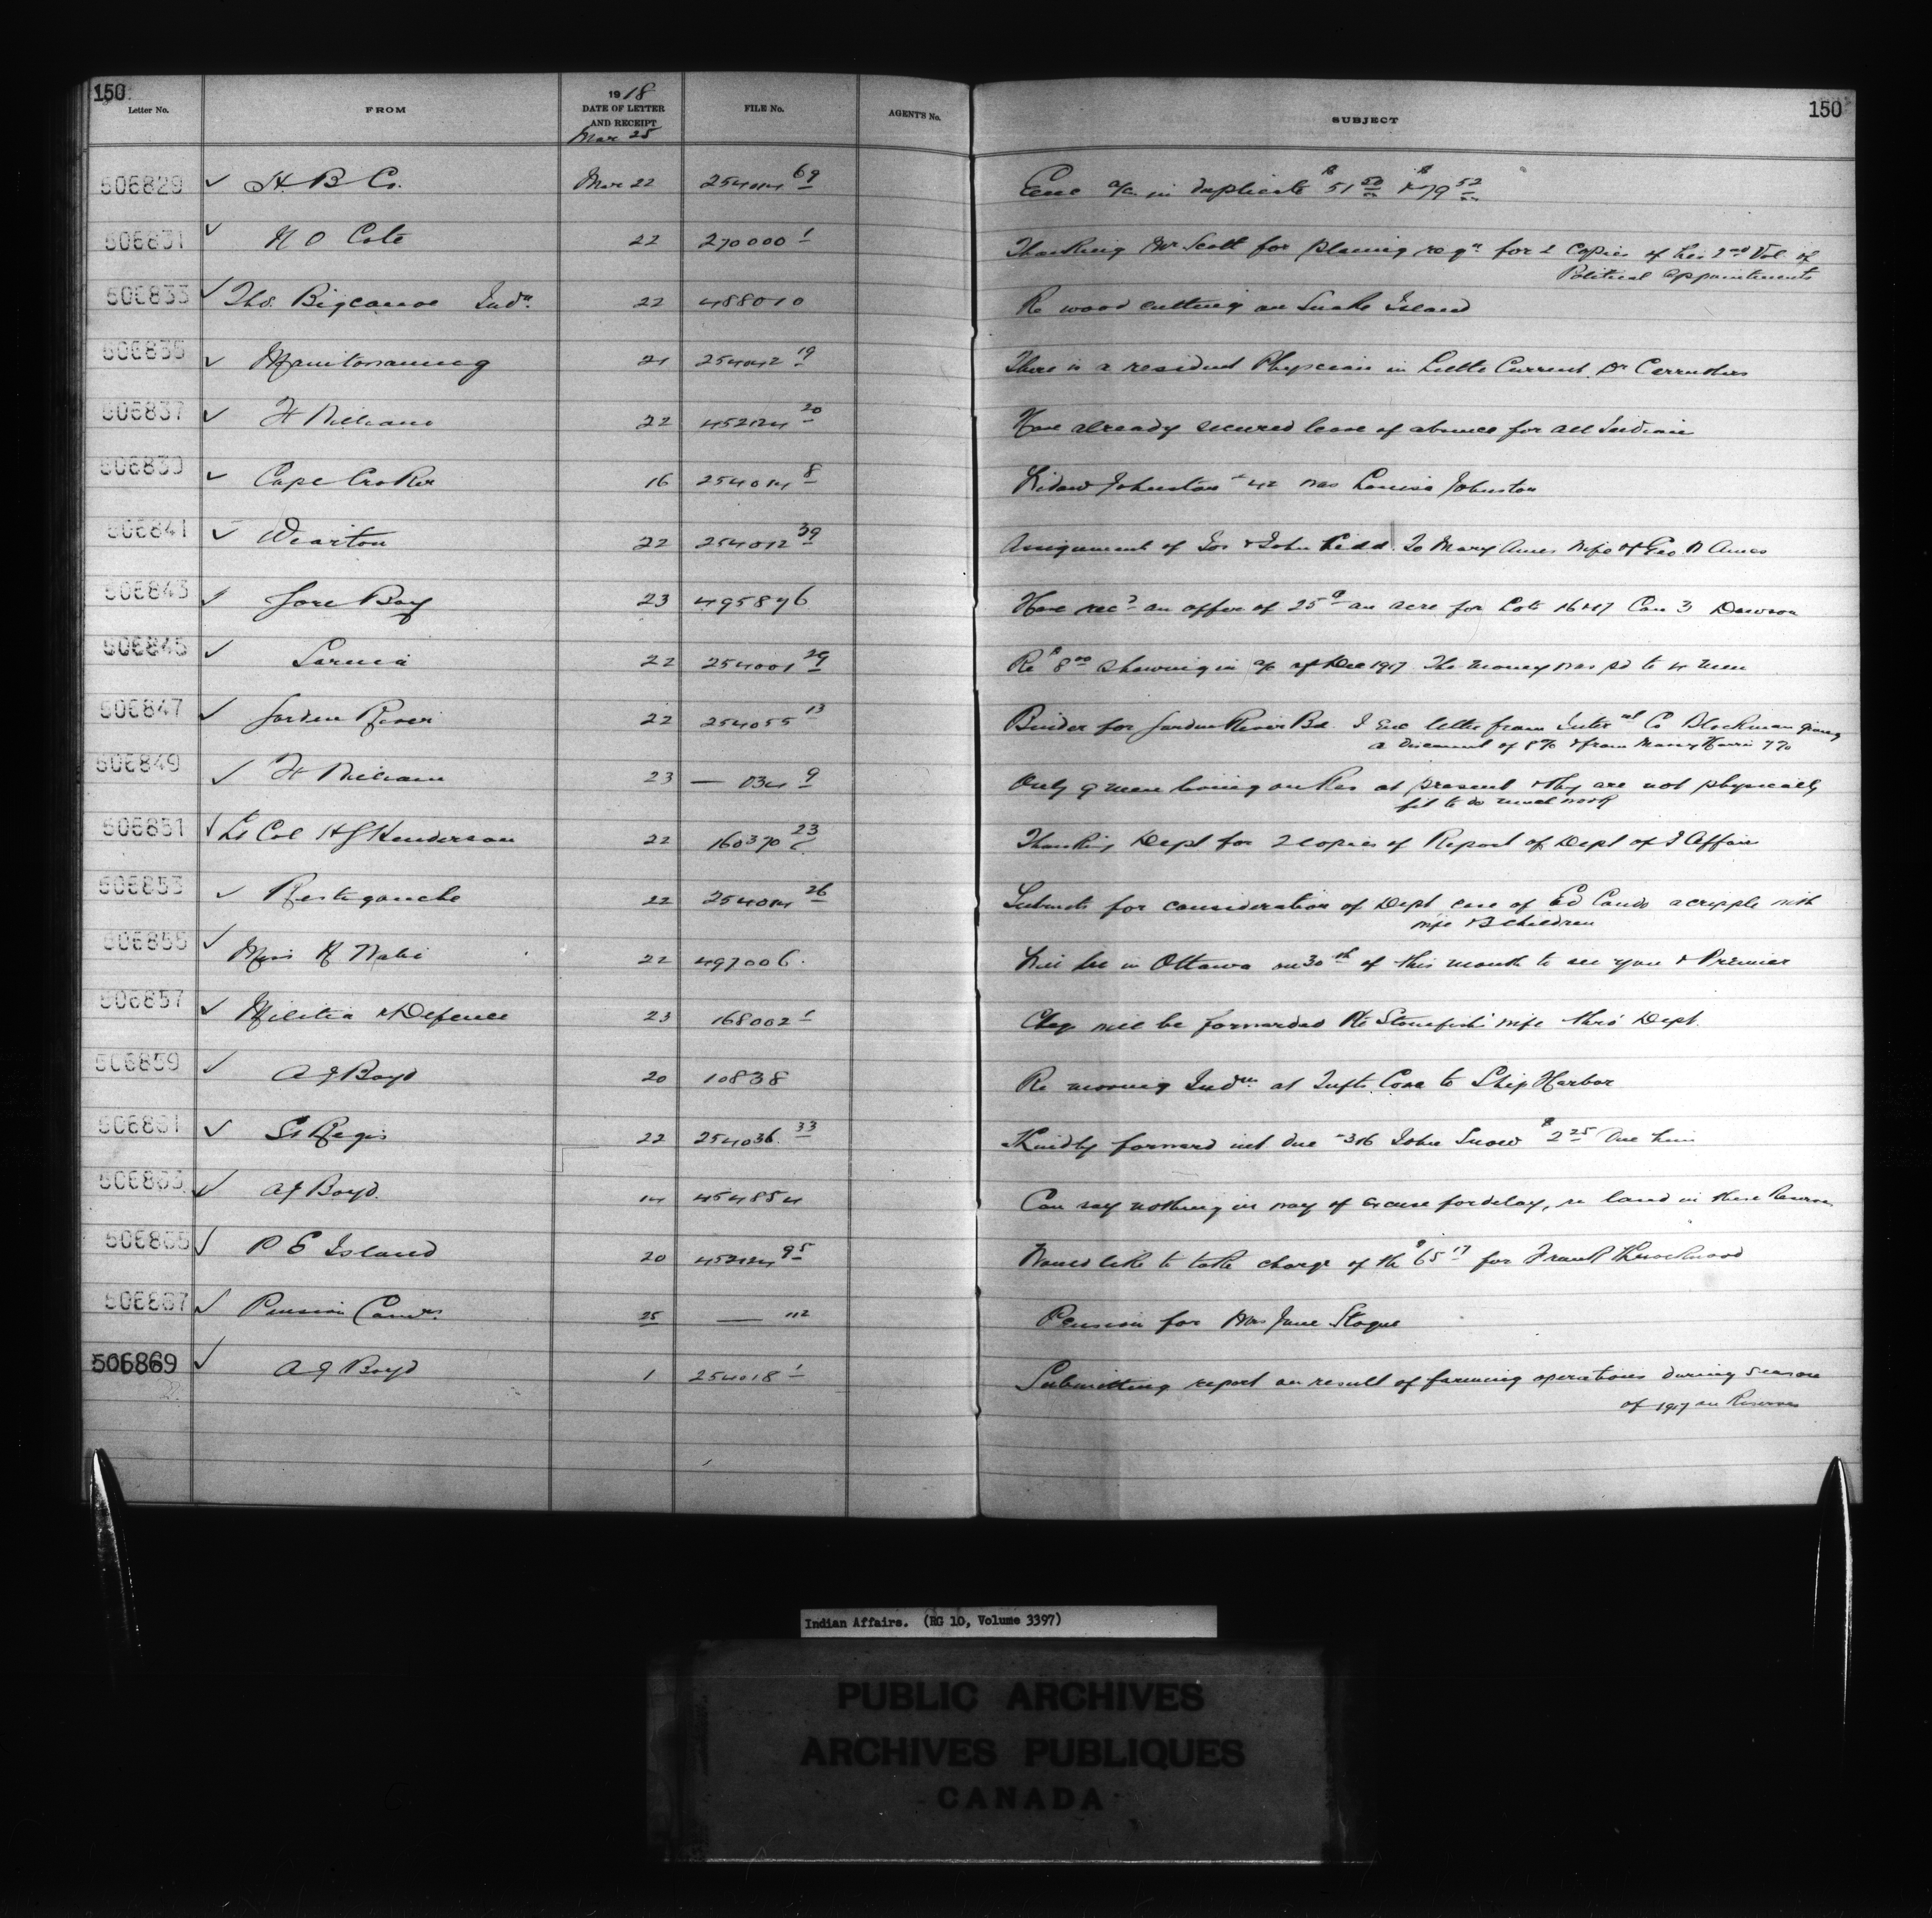 150
Letter No. FROM 1918 DATE OF LETTER AND RECEIPT FILE No. AGENT'S No. SUBJECT 150
Mar 25
506829 ✓ H B Co. Mar 22 254014 69 Enc a/c in duplicate $51 50 & $79 52
506831 ✓ N O Cote 22 270000 1 Thanking Mr Scott for placing reqn for 2 Copies of his 2nd Vol of
Political Appointments
506833 ✓ Thos. Bigcanoe Indn 22 488010 Re wood cutting on Snake Island
506835 ✓ Manitowaning 21 254042 19 There is a resident Physician in Little Current. Dr Carruthers
506837 ✓ Ft William 22 452124 20 Have already secured leave of absence for all Indians
506839 ✓ Cape Croker 16 254014 8 Widow Johnston #42 was Louisa Johnston
506841 ✓ Wiarton 22 254012 39 Assignment of Jos & John Kedd. To Mary Ames wife of Geo Ames
506843 ✓ Gore Bay 23 495896 Have recd an offer of 25¢ an acre for Lots 16 & 17 Con 3 Dawson
506845 ✓ Sarnia 22 254001 29 Re $8 00 showing in a/c of Dec 1917 The money was pd to 4 men
506847 ✓ Garden River 22 254055 13 Binder for Garden River Bd. I Enc letter from Co giving
a discount of 8% & from Massey Harris 7%
506849 ✓ Ft William 23 — 034 9 Only 9 men living on Res at present & they are not physically
fit to do much work
506851 ✓ Lt Col H Henderson 22 160370 23 Thanking Dept for 2 copies of Report of Dept of I Affairs
506853 ✓ Restigouche 22 254014 26 Submits for consideration of Dept case of Ed a cripple with
wife & children
506855 ✓ Miss 22 497006. Will be in Ottawa on 30th of this month to see you & Premier
506857 ✓ Militia & Defence 23 168002 1 Chqs will be forwarded Pte Stonefish' wife thro' Dept.
506859 ✓ A J Boyd 20 10838 Re moving Indns at Tufts Cove to Ship Harbor
506861 ✓ St Regis 22 254036. 33 Kindly forward int due #316 John Snow $2 25 Due him
506863 ✓ A J Boyd. 14 454854 Can say nothing in way of excuse for delay, re land in these Reserves
506865 ✓ P E Island 20 452124 95 Would like to take charge of the $65 17 for Frank Knockwood
506867 ✓ Pension Comrs. 25 — 112 Pension for Mrs Jane Stogue
506869 ✓ A J Boyd 1 254018 1 Submitting report on result of farming operations during season
of 1917 on Reserves
Indian Affairs. (RG 10, Volume 3397)
PUBLIC ARCHIVES
ARCHIVES PUBLIQUES
CANADA